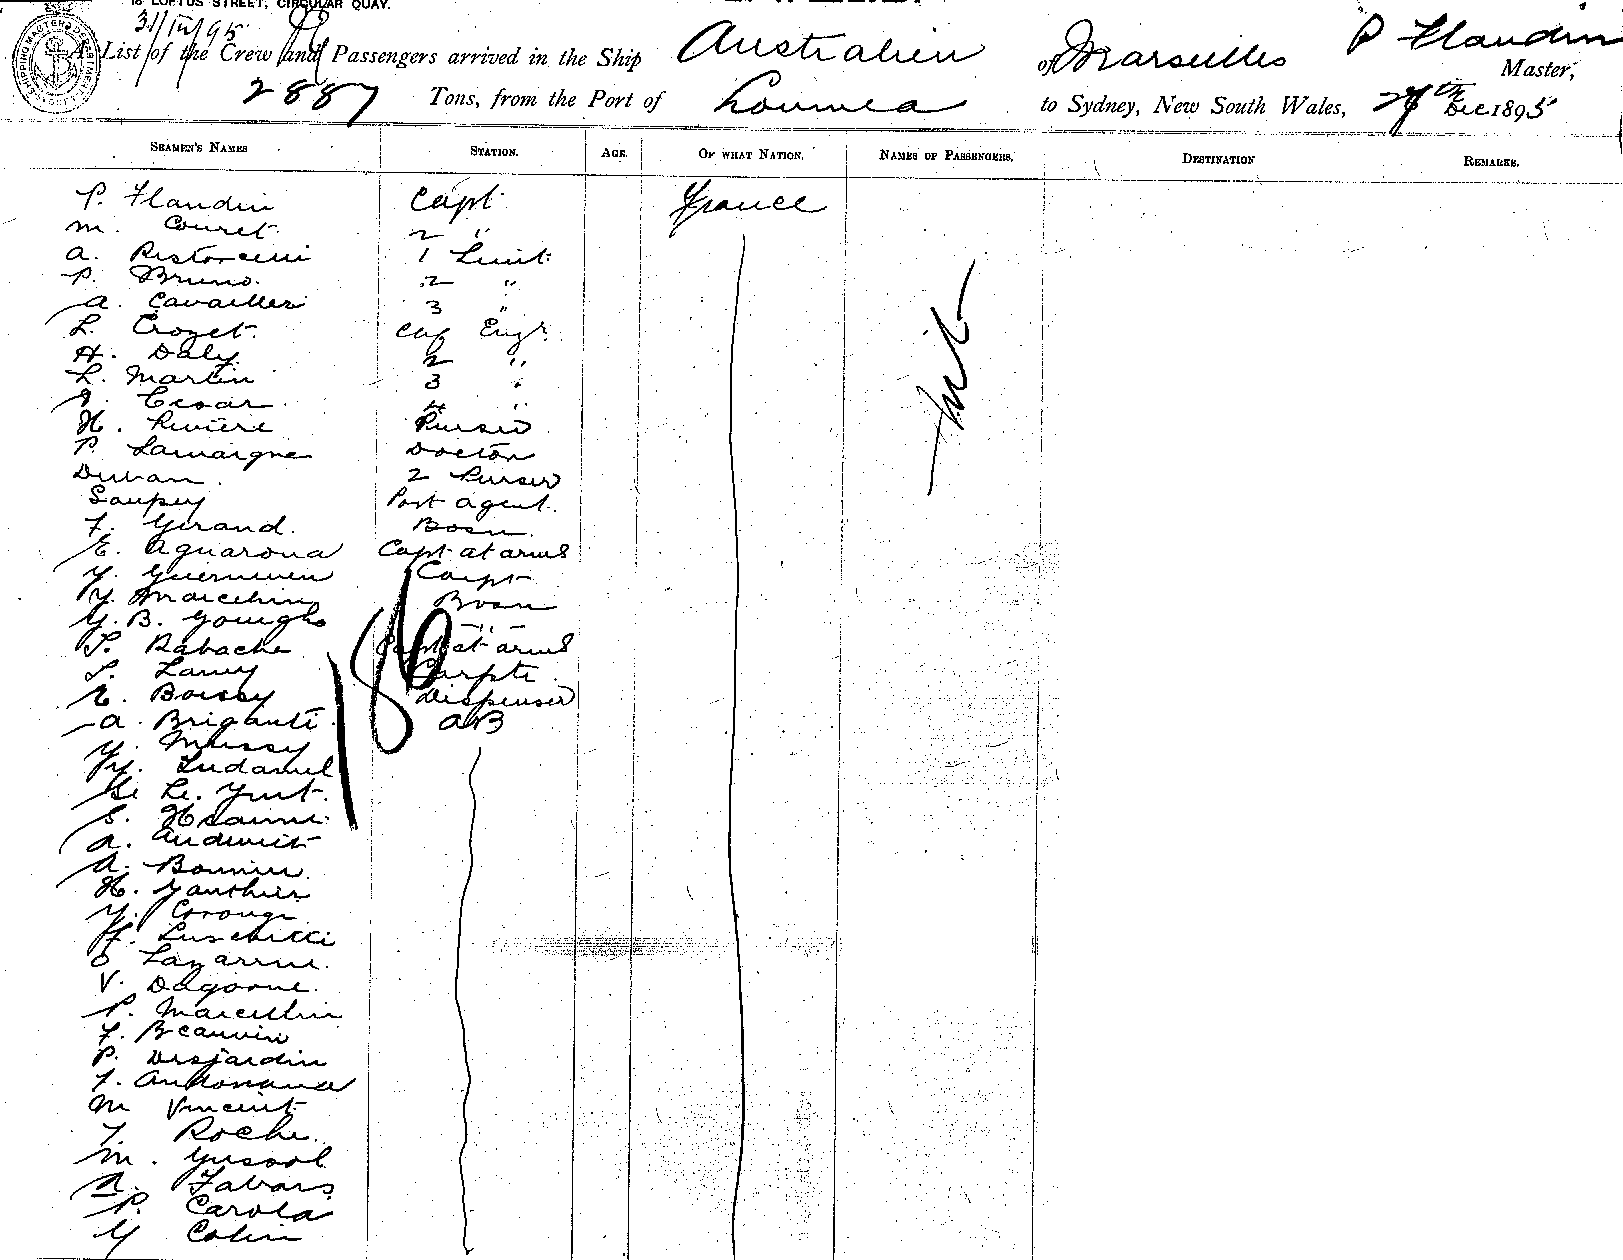 18 LOFTUS STREET, CIRCULAR QUAY.
31/12/95
A List of the Crew and Passengers arrived in the Ship Australien of Marseilles P Flandin Master,
2887 Tons, from the Port of Noumea to Sydney, New South Wales, Dec 1895
SEAMEN'S NAMES STATION. AGE. OF WHAT NATION. NAMES OF PASSENGERS. DESTINATION REMARKS.
P. Flandin Capt France
M. Couret 2 "
A. Ristorcelli 1 Lieut
P. Bruno 2 "
A. Cavailles 3 "
L. Crozet Engr
H. Daly 2 "
L. Martin 3 "
Cesar 4 "
H. Riviere Purser
P. Lamaigne Doctor
Duban 2 Purser
Saupey Post agent
F. Girand Bosn
E. Aguarona Capt at arms
Y. Carpt
Y. Marcelin Bosn
Y. B. "
Rabache Capt at arms
Lamy Carpt
E. Boissy Dispenser
A. Briganti AB
Y. Mussy
Y. Ludamel
Le
E.
A.
A. Bonnin
H. Gauthier
Y.
O Lazarini
V. Dagorne
P. Marcellin
F. Beauvin
P. Desjardin
F.
M Vincent
F. Roche
M.
A. Fabars
P. Carola
Y Colin
Nil